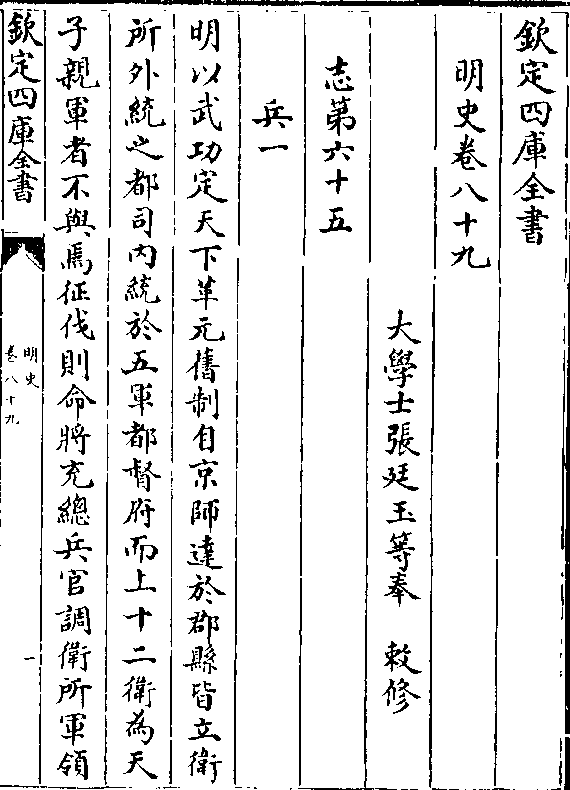 欽定四庫全書
明史卷八十九
大學士張廷玉等奉　敕修
志第六十五
兵一
明以武功定天下革元舊制自京師達於郡縣皆立衛
所外統之都司内統於五軍都督府而上十二衛為天
子親軍者不與焉征伐則命將充總兵官調衛所軍領
欽定四庫全書
明史
卷八十九
一